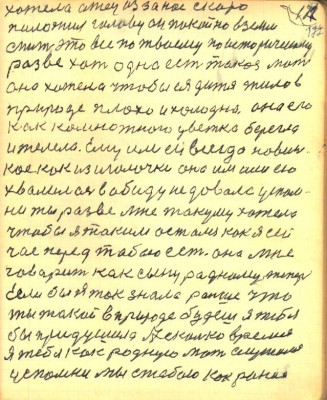 хотела отец из за нас скоро
положил голову он покойно в земли
спит, это все по твоему по историческому
разве хот одна ест такоя мат
она хотела чтобы ея дитя жилов
природе плохо и холодна она его
как комнотного цветка берегла
и телела. Ему или ей всегда новин-
кое как из иголочки она им или ею
хвалилас в абиду не довала успом-
ни ты разве мне такуму хотела
чтобы я таким осталс как я сей
час перед табою ест. она мне
говарит как сыну радному
Если бы я ток знала раньше что
ты такой в природе будеш я тебя
бы придушила Несколко времия
я тебя как родную мат слушал
успомни мы стабою как рано